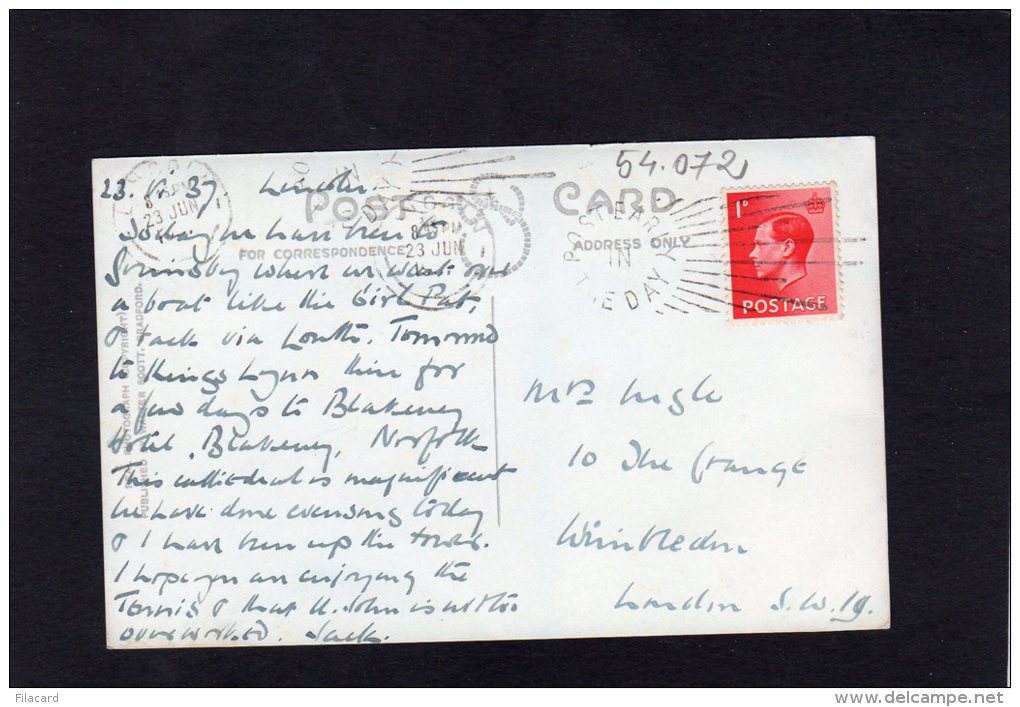 54.072
POST CARD
FOR CORRESPONDENCE
ADDRESS ONLY
1D
POSTAGE
POST EARLY
IN
THE DAY
8 15 PM
23 JUN
8 15 PM
23 JUN
PHOTOGRAPH (COPYRIGHT)
PUBLISHED BY WALTER SCOTT, BRADFORD.
23. VI 37 Lincoln.
Today we have been to
Grimsby where we went over
a boat like the Girl Pat,
& back via Louth. Tomorrow
to Kings Lynn then for
a few days to Blakeney
Hotel, Blakeney, Norfolk
This cathedral is magnificent
we have done evensong today
& I have been up the tower.
I hope you are enjoying the
Tennis & that U. John is not too
overworked. Jack.
Mrs Ingle
10 The Grange
Wimbledon
London S.W.19.
Filacard
www.delcampe.net